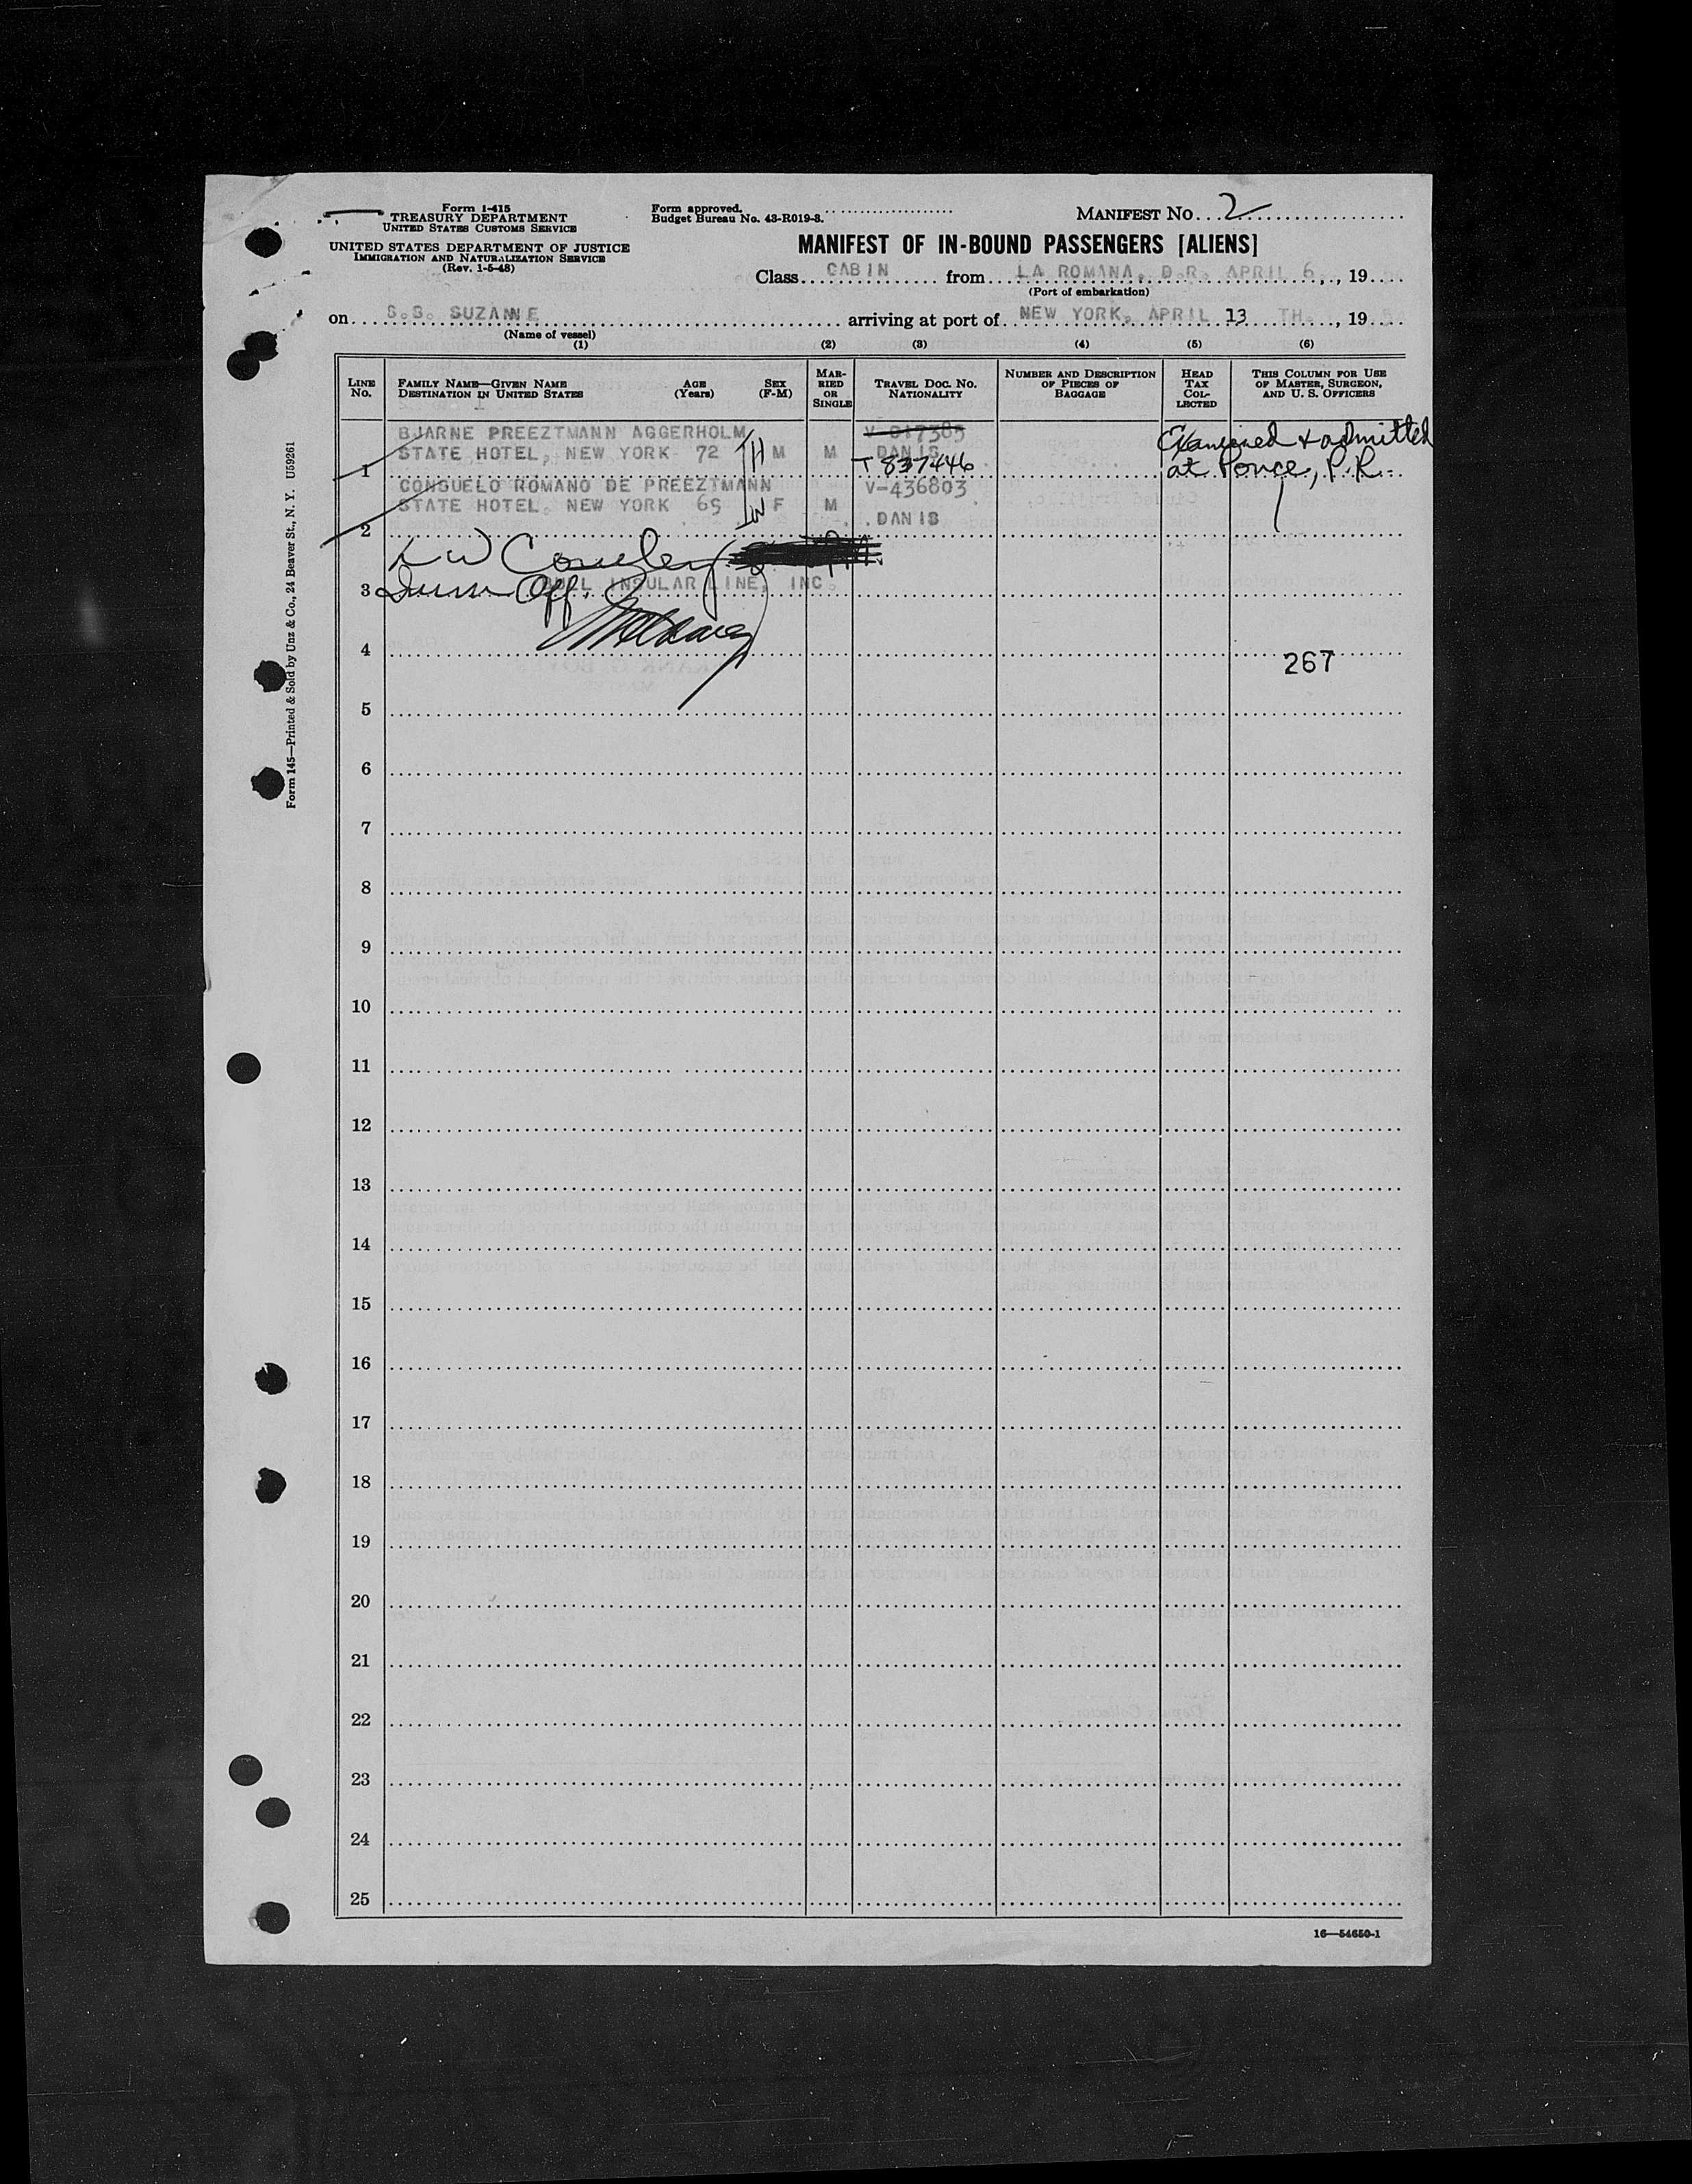 Form I-415
TREASURY DEPARTMENT
UNITED STATES CUSTOMS SERVICE
UNITED STATES DEPARTMENT OF JUSTICE
IMMIGRATION AND NATURALIZATION SERVICE
(Rev. 1-5-48)
Form approved.
Budget Bureau No. 43-R019-3.
MANIFEST No. 2
MANIFEST OF IN-BOUND PASSENGERS [ALIENS]
Class CABIN from LA ROMANA, D.R. APRIL 6, 19
(Port of embarkation)
on S.S. SUZANNE arriving at port of NEW YORK, APRIL 13 TH., 19
(Name of vessel)
(1) (2) (3) (4) (5) (6)
LINE No.
FAMILY NAME—GIVEN NAME DESTINATION IN UNITED STATES
AGE (Years)
SEX (F-M)
MARRIED OR SINGLE
TRAVEL DOC. NO. NATIONALITY
NUMBER AND DESCRIPTION OF PIECES OF BAGGAGE
HEAD TAX COLLECTED
THIS COLUMN FOR USE OF MASTER, SURGEON, AND U. S. OFFICERS
BJARNE PREEZTMANN AGGERHOLM V-017385
1 STATE HOTEL, NEW YORK 72 M M DANIS
T 837446
Examined & admitted
at Ponce, P.R.
CONSUELO ROMANO DE PREEZTMANN V-436803
2 STATE HOTEL, NEW YORK 65 F M DANIS
3 BULL INSULAR LINE, INC.
4
267
5
6
7
8
9
10
11
12
13
14
15
16
17
18
19
20
21
22
23
24
25
16—54650-1
Form 145—Printed & Sold by Unz & Co., 24 Beaver St., N. Y. U59261